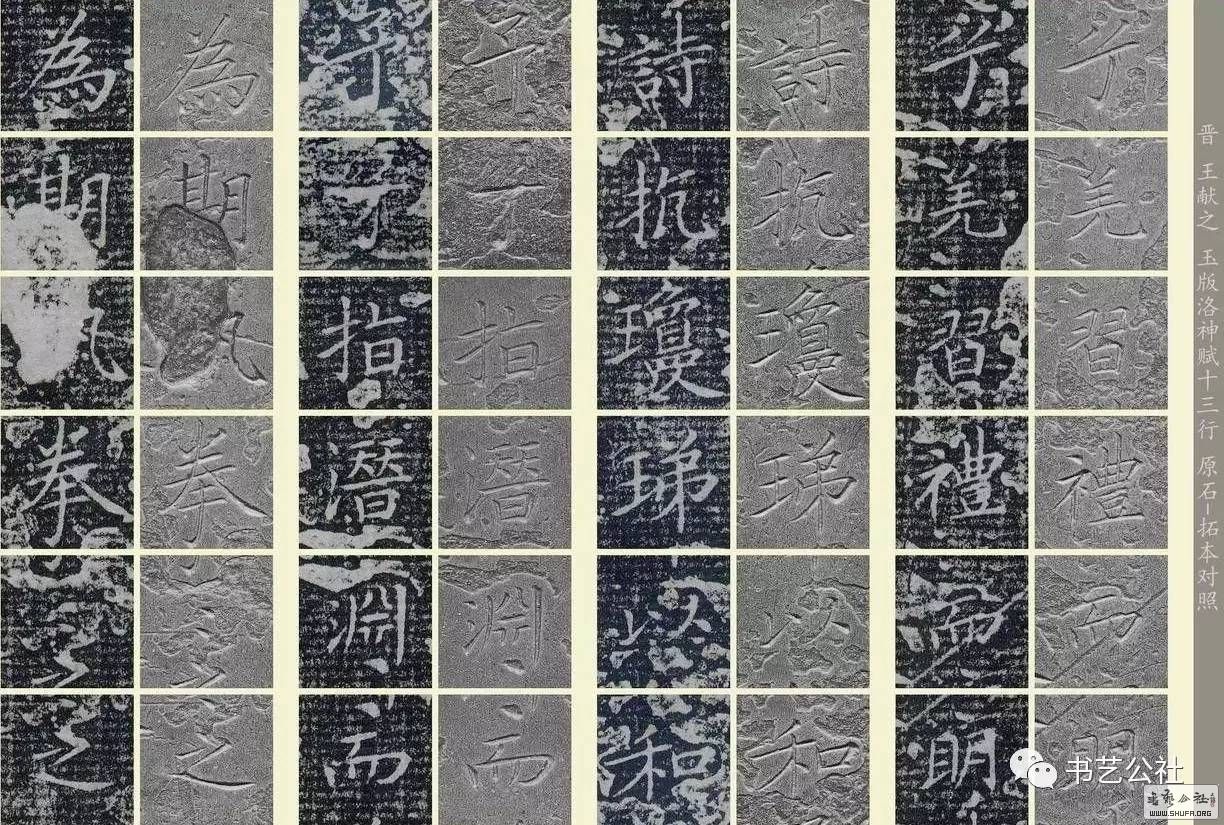 晋 王献之 玉版洛神赋十三行 原石-拓本对照
兮羌習禮而明
兮羌習禮而明
詩抗瓊珶以和
詩抗瓊珶以和
予兮指潛淵而
予兮指潛淵而
為期拳之
為期拳之
书艺公社
WWW.SHUFA.ORG